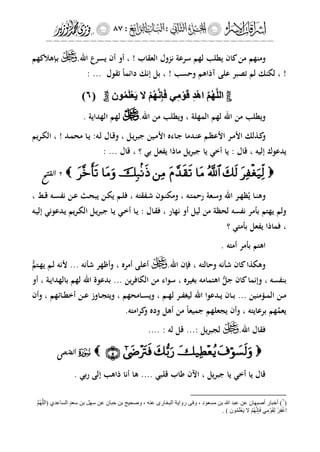 الباب الثانى : ٨٧
ومنهم من كان يطلب لهم سرعة نزول العقاب ! ، أو أن يسرع الله بإهلاكهم
! ، لكنك لم تصبر على آذاهم وحسب ! ، بل إنك دائماً تقول : ...
اللَّهُمَّ اهْدِ قَوْمِي فَإِنَّهُمْ لا يَعْلَمُونَ (٦)
ويطلب من الله لهم المهلة ، ويطلب من الله لهم الهداية .
وكذلك الأمر الأعظم عندما جاءه الأمين جبريل ، وقال له: يا محمد ! ، الكريم
يدعوك إليه ، قال : يا أخي يا جبريل ماذا يفعل بي ؟ ، قال : ...
لِيَغْفِرَ لَكَ اللَّهُ مَا تَقَدَّمَ مِن ذَنْبِكَ وَمَا تَأَخَّرَ ٢ الفتح
وهنا يُظهر الله وسعة رحمته ، ومكنون شفقته ، فلم يكن يبحث عن نفسه قط ،
ولم يهتم بأمر نفسه لحظة من ليل أو نهار ، فقال : يا أخي يا جبريل الكريم يدعوني إليه
، فماذا يفعل بأمتي ؟
اهتم بأمر أمته .
وهكذا كان شأنه وحالته ، فإن الله أعلى أمره ، وأظهر شأنه ... لأنه لم يهتم
بنفسه ، وإنما كان جل اهتمامه بغيره ، سواء من الكافرين ... بدعوة الله لهم بالهداية ، أو
من المؤمنين ... بأن يدعوا الله ليغفر لهم ، ويسامحهم ، ويتجاوز عن أخطائهم ، وأن
يعمهم برعايته ، وأن يجعلهم جميعاً من أهل وده وكرامته.
فقال الله لجبريل :... قل له : ....
وَلَسَوْفَ يُعْطِيكَ رَبُّكَ فَتَرْضَىٰ ٥ الضحى
قال يا أخي يا جبريل ، الآن طاب قلبي .... ها أنا ذاهب إلى ربي .
(٦) أخبار أصبهان عن عبد الله بن مسعود ، وفى رواية البخارى عنه ، وصحيح بن حبان عن سهل بن سعد الساعدي (اللَّهُمَّ
اغْفِرْ لِقَوْمِي فَإِنَّهُمْ لا يَعْلَمُونَ ) .